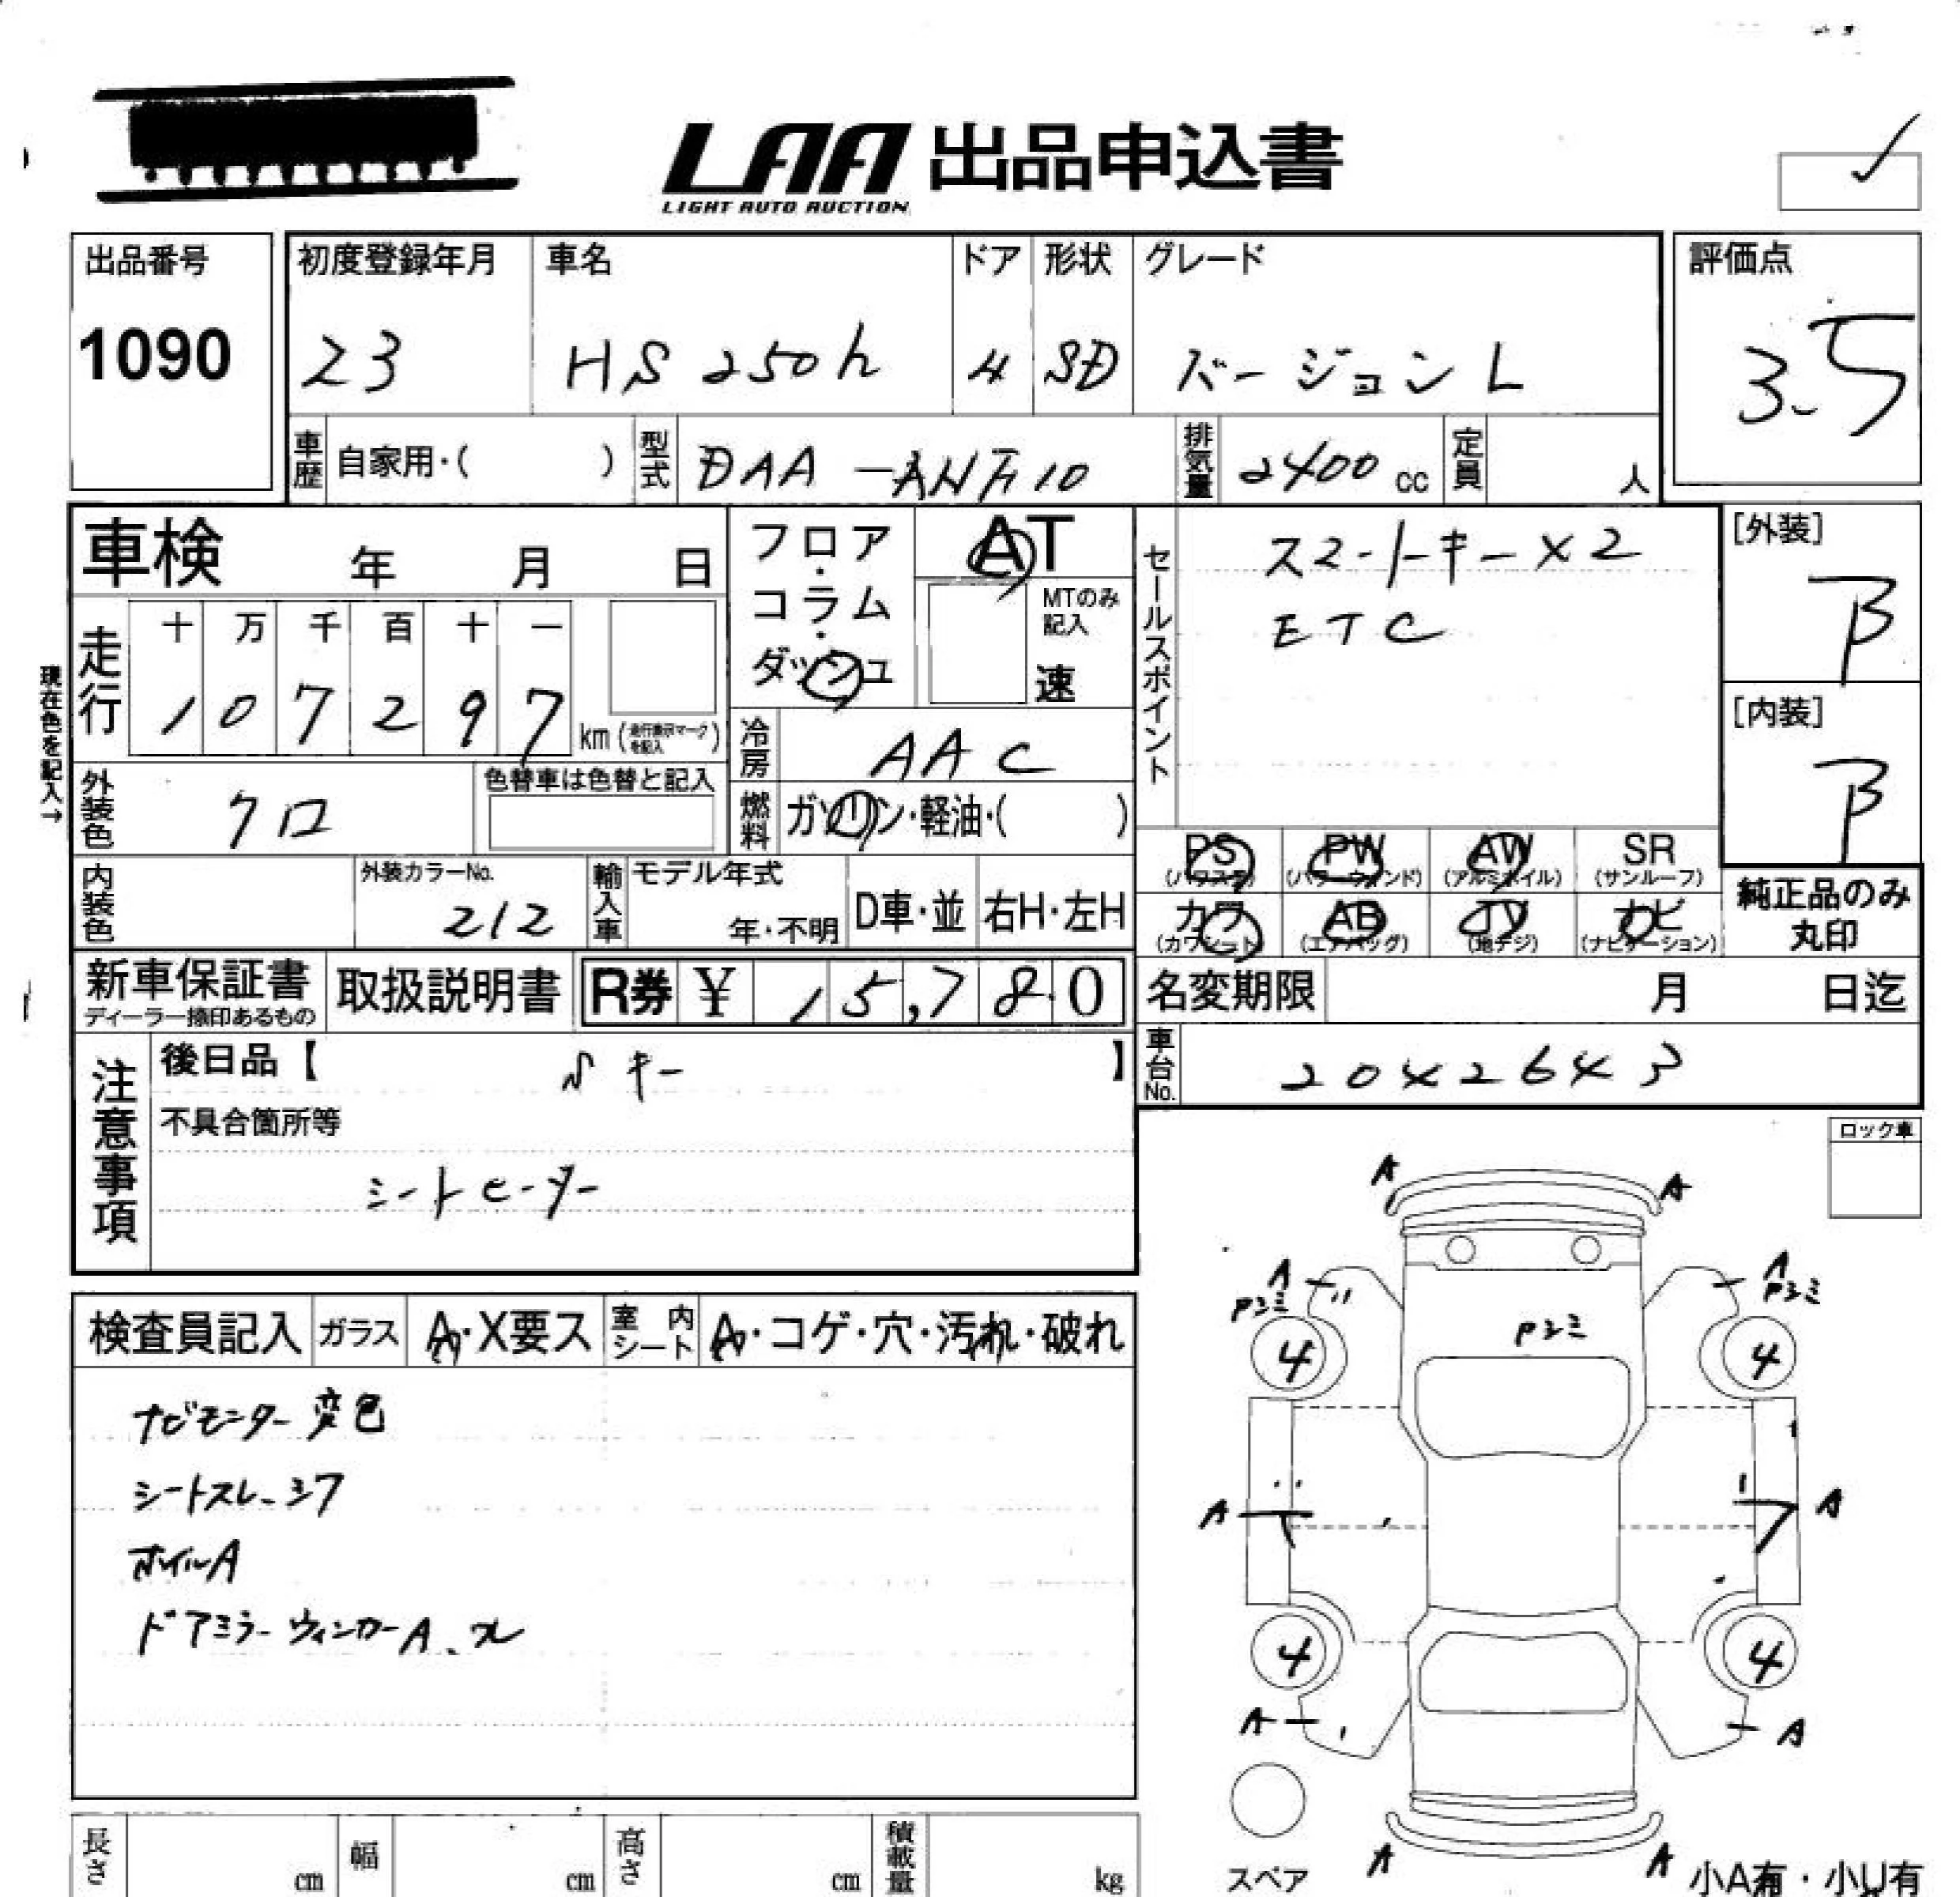 LAA 出品申込書
LIGHT AUTO AUCTION
出品番号
1090
初度登録年月
23
車名
HS250h
ドア
4
形状
SD
グレード
バージョンL
評価点
3.5
車歴 自家用・( )
型式 DAA-ANF10
排気量 2400 cc
定員 人
車検 年 月 日
フロア・コラム・ダッシュ
AT
MTのみ記入
速
セールスポイント
スマートキー×2
ETC
[外装]
B
[内装]
B
現在色を記入→
走行
十 万 千 百 十 一
1 0 7 2 9 7 km
冷房 AAC
外装色 クロ
色替車は色替と記入
燃料 ガソリン・軽油・( )
PS PW AW SR
(パワステ) (パワーウィンド) (アルミホイル) (サンルーフ)
カワ AB TV ナビ
(カワシート) (エアバッグ) (地デジ) (ナビゲーション)
純正品のみ
丸印
内装色
外装カラーNo.
212
輸入車
モデル年式
年・不明
D車・並
右H・左H
新車保証書
ディーラー捺印あるもの
取扱説明書
R券 ¥ 15,780
名変期限 月 日迄
車台No. 2042643
注意事項
後日品【 Sキー 】
不具合箇所等
シートヒーター
ロック車
検査員記入 ガラス A・X要ス 室内シート A・コゲ・穴・汚れ・破れ
ナビモニター変色
シートスレ、シワ
ホイルA
ドアミラーウィンカーA、
A A
A A
4 4
A A
4 4
A A
A A
スペア
小A有・小U有
長さ cm
幅 cm
高さ cm
積載量 kg